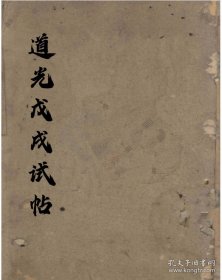 道光戊戌试帖
孔夫子旧书网